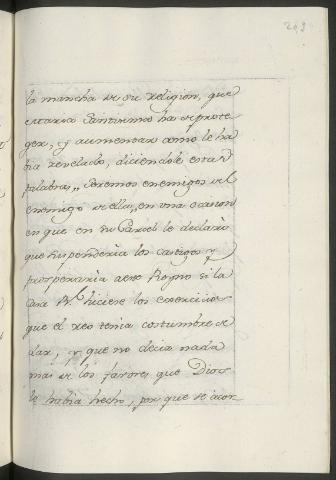 la mancha de su religion, que
Maria Santissima ha de prote
ger, y aumentar como le ha
via revelado, diciendole estas
palabras, Seremos enemigos del
enemigo de ella, en una ocasion
en que en su Carcel le declaró
que suspenderia los castigos y
prosperaria a este Reyno si la
Casa R.l hiciese los exercicios
que el reo tenia costumbre de
dar, y que no decia nada
mas de los favores que Dios
le habia hecho, por que se acor